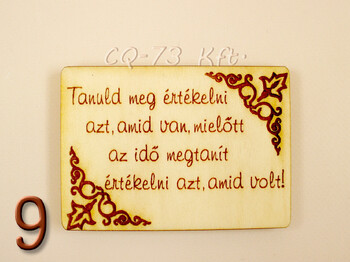 CQ-73 Kft.
Tanuld meg értékelni
azt, amid van, mielőtt
az idő megtanít
értékelni azt, amid volt!
9